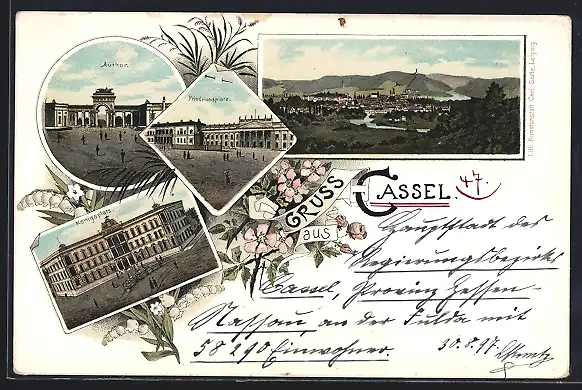 Author.
Friedrichsplatz.
Königsplatz.
GRUSS
aus
CASSEL.
47.
Hauptstadt des
Regierungsbezirks
Cassel, Provinz Hessen-
Nassau, an der Fulda mit
58290 Einwohner.
30.8.97.
Lith. Kunstanstalt Leipzig